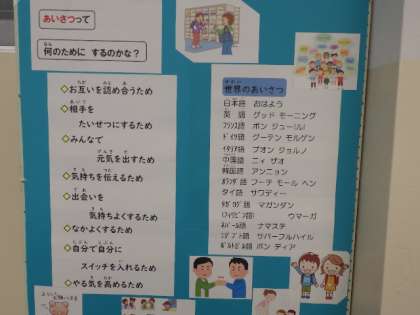 あいさつって
何のために するのかな?
◇お互いを認め合うため
◇相手を
たいせつにするため
◇みんなで
元気を出すため
◇気持ちを伝えるため
◇出会いを
気持ちよくするため
◇なかよくするため
◇自分で自分に
スイッチを入れるため
◇やる気を高めるため
世界のあいさつ
日本語 おはよう
英 語 グッド モーニング
フランス語 ボン ジュール
ドイツ語 グーテン モルゲン
イタリア語 ブオン ジョルノ
中国語 ニィ ザオ
韓国語 アンニョン
オランダ語 フーチ モール ヘン
タイ語 サワディー
タガログ語 マガンダン
(フィリピン語) ウマーガ
ネパール語 ナマステ
エジプト語 サバーフルハイル
ポルトガル語 ボン ディア